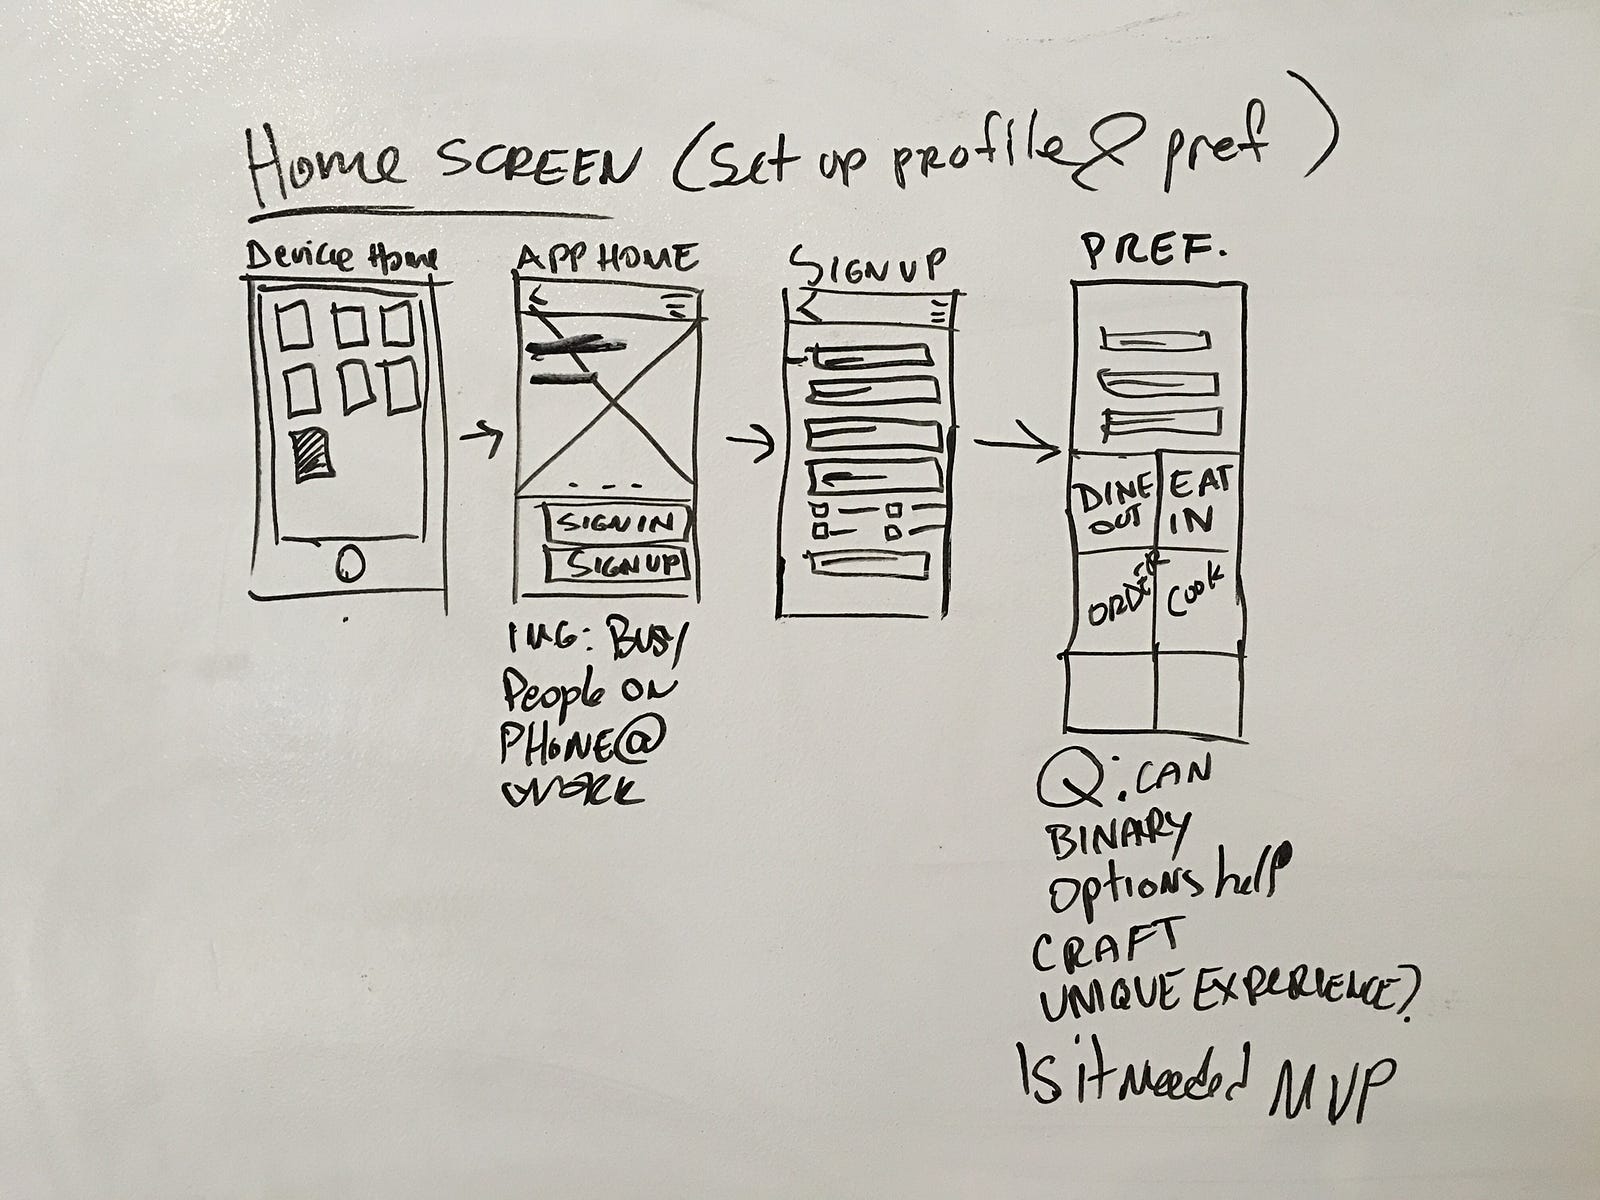 Home SCREEN (Set up profile & pref)
Device Home
APP HOME
SIGN UP
PREF.
SIGN IN
SIGN UP
DINE OUT
EAT IN
ORDER
Cook
IMG: Busy
People on
PHONE@
WORK
Q: CAN
BINARY
options help
CRAFT
UNIQUE EXPERIENCE?
Is it needed MVP